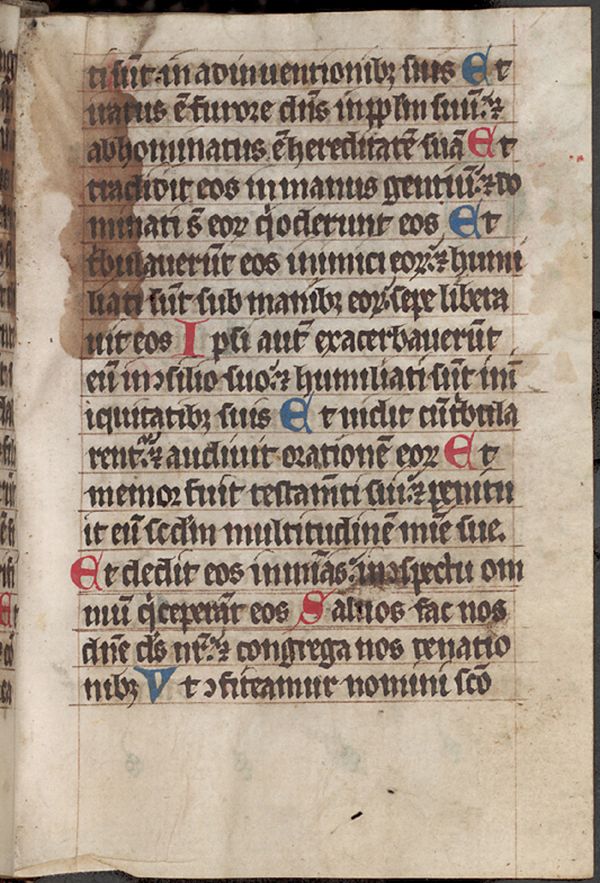 ti sūt in adinuentionibꝫ suis Et
iratus ē furore dn̄s in pp̄lm suū ⁊
abhominatus ē hereditatē suā Et
tradidit eos in manus gentiū ⁊ do
minati s̄ eoꝝ q̇ oderunt eos Et
t̄bulauerūt eos inimici eoꝝ ⁊ humi
liati sūt sub manibꝫ eoꝝ sepe libera
uit eos Ipsi aut̄ exacerbauerūt
eū in ꝯsilio suo ⁊ humiliati sūt in
iquitatibꝫ suis Et uidit cū t̄bula
rent̄ ⁊ audiuit orationē eoꝝ Et
memor fuit testam̄ti sui ⁊ penitu
it eū scd̄m multitudinē mīe sue.
Et dedit eos in mīas in ꝯspectu om
niū q̇ ceperāt eos Saluos fac nos
dn̄e ds̄ nr̄ ⁊ congrega nos de natio
nibꝫ Vt ꝯfiteamur nomini sc̄o